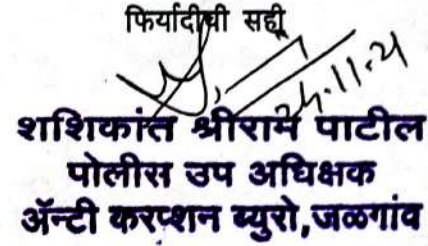 फिर्यादीची सही
24.11.21
शशिकांत श्रीराम पाटील
पोलीस उप अधिक्षक
ॲन्टी करप्शन ब्युरो,जळगांव